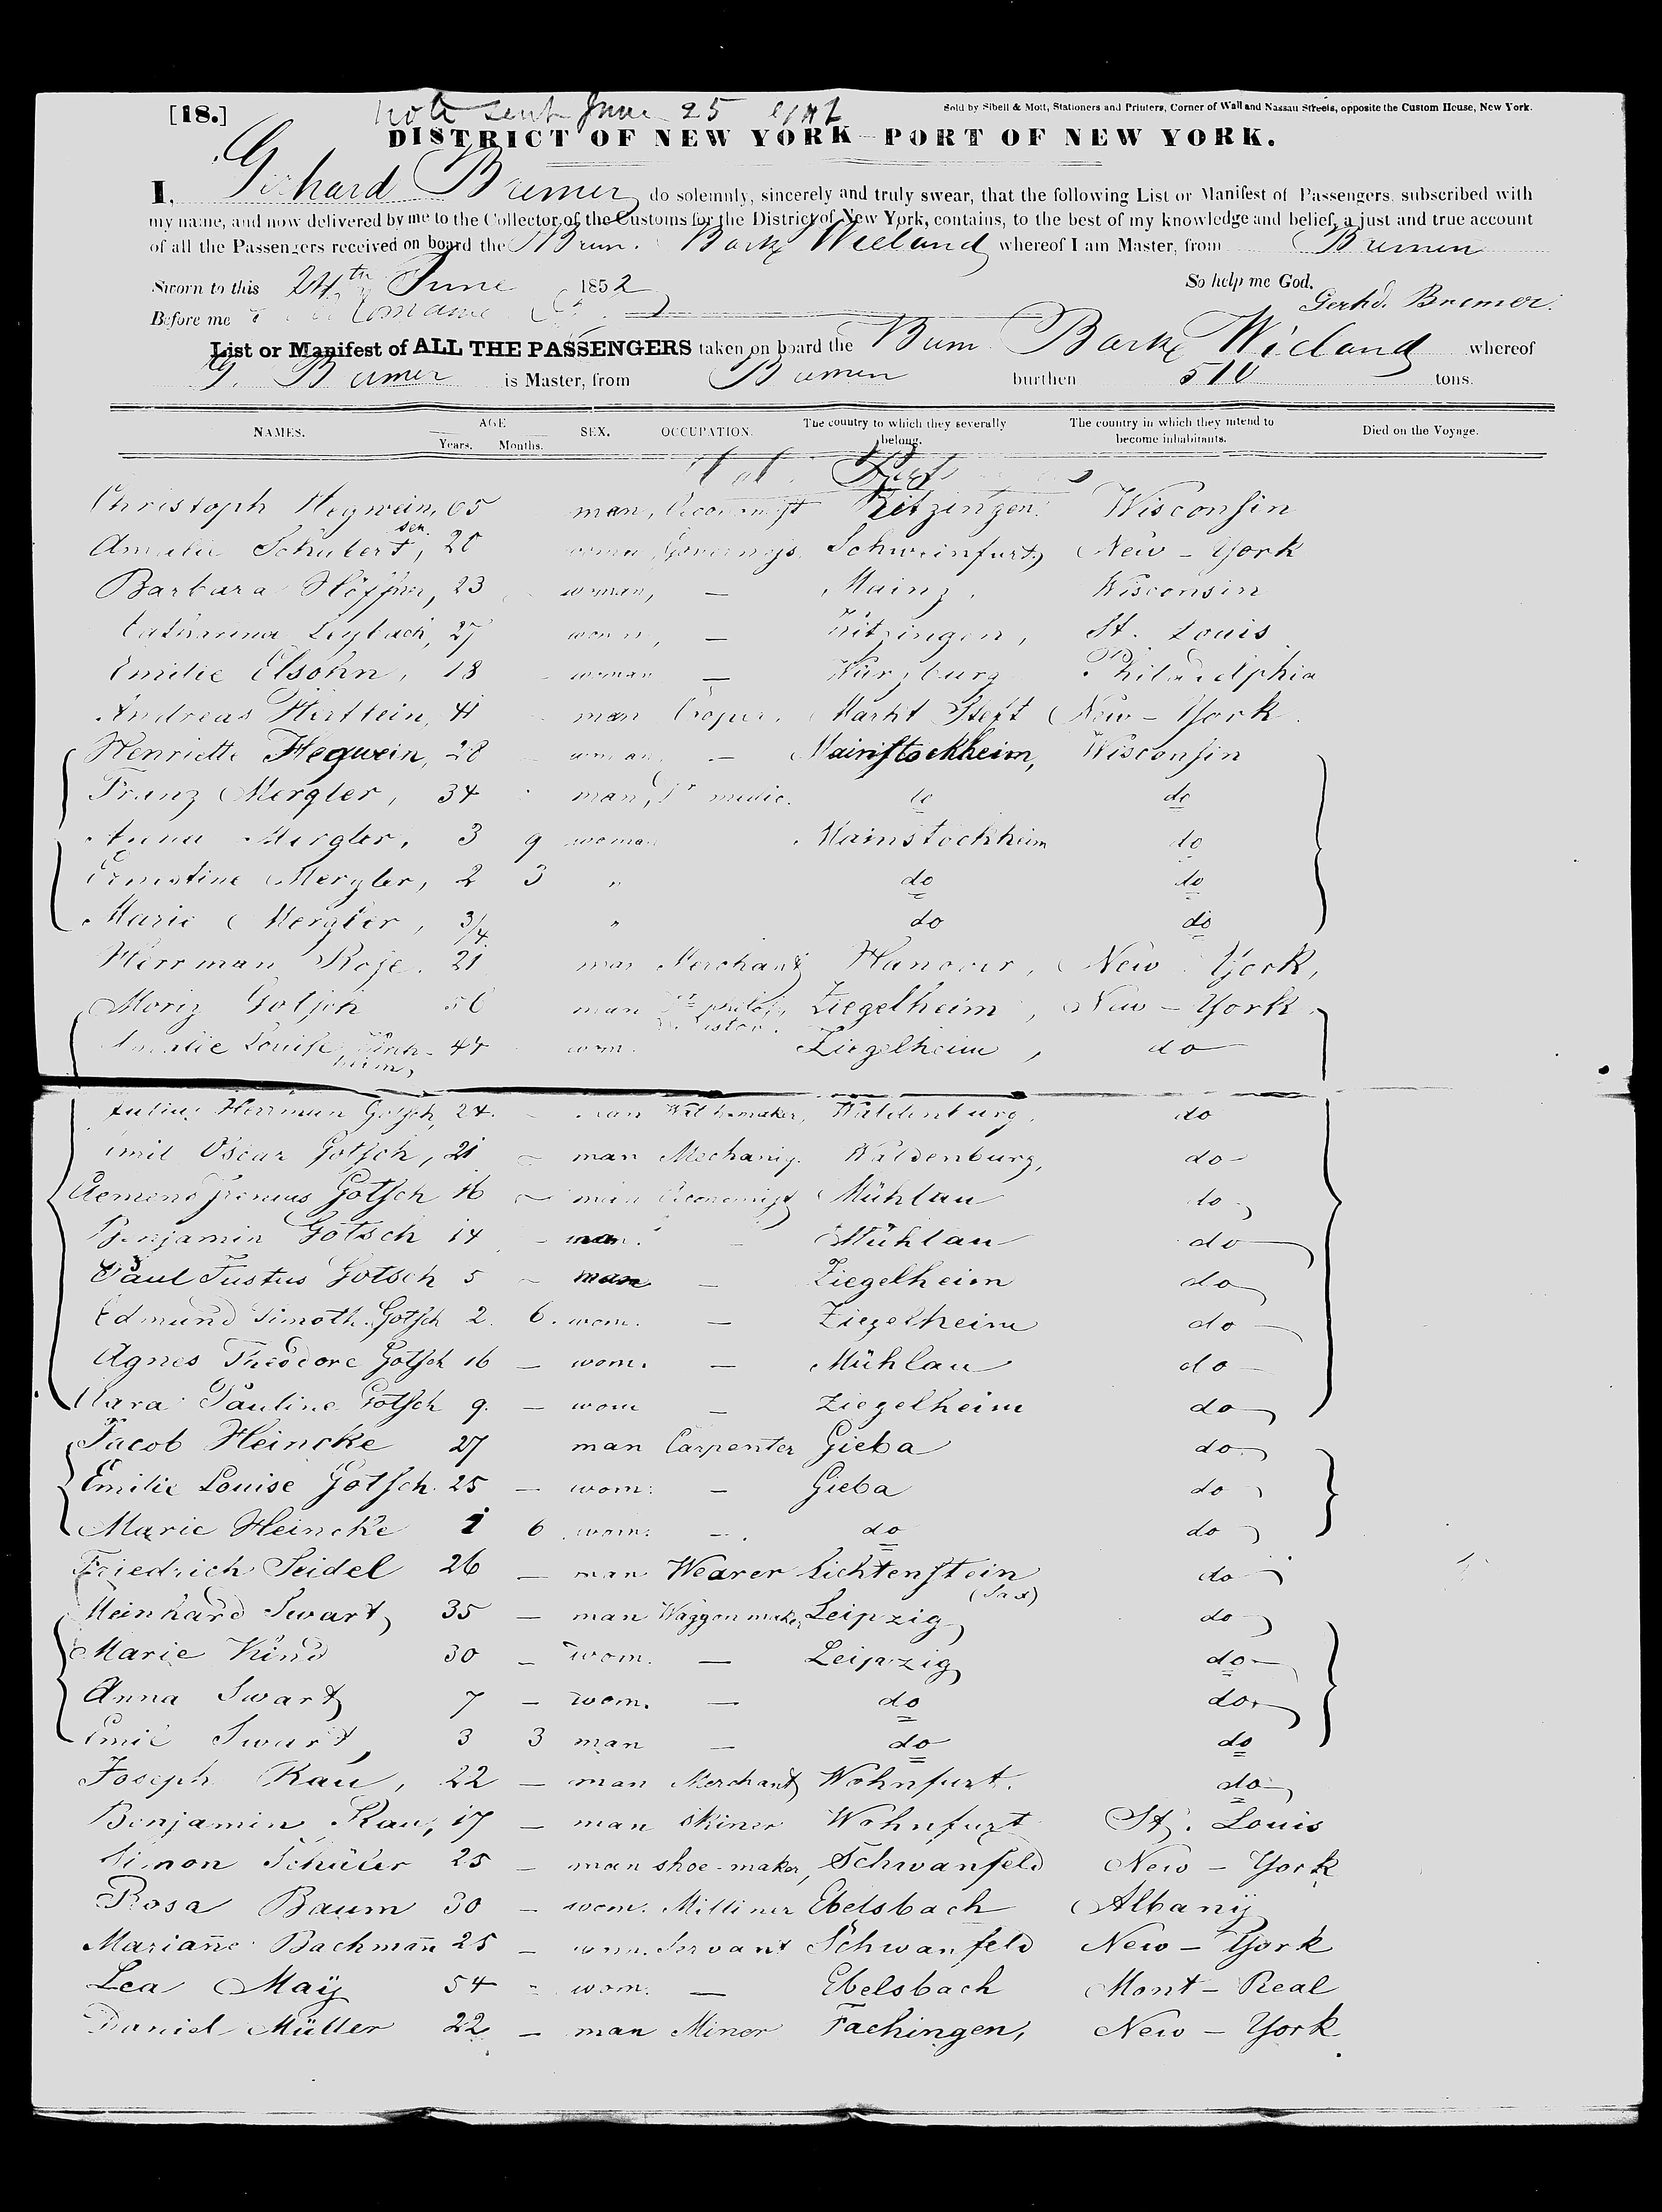 [18.] note sent June 25 Sold by Sibell & Mott, Stationers and Printers, Corner of Wall and Nassau Streets, opposite the Custom House, New York.
DISTRICT OF NEW YORK—PORT OF NEW YORK.
I, Gerhard Bremer do solemnly, sincerely and truly swear, that the following List or Manifest of Passengers, subscribed with
my name, and now delivered by me to the Collector of the Customs for the District of New York, contains, to the best of my knowledge and belief, a just and true account
of all the Passengers received on board the Brem. Bark Wieland whereof I am Master, from Bremen
Sworn to this 24th June 1852 So help me God,
Before me Gerhd. Bremer.
List or Manifest of ALL THE PASSENGERS taken on board the Brem Barke Wieland whereof
G. Bremer is Master, from Bremen burthen 510 tons.
NAMES. AGE Years. Months. SEX. OCCUPATION. The country to which they severally belong. The country in which they intend to become inhabitants. Died on the Voyage.
Christoph Hegwein, sen 65 man, Oeconomist Kitzingen. Wisconsin
Amalie Schubert, 20 woman Governess, Schweinfurt, New-York
Barbara Höffner, 23 woman, — Mainz. Wisconsin
Catharina Leybach, 27 woman, — Kitzingen, St. Louis
Emilie Elsohn, 18 woman — Würzburg Philadelphia
Andreas Hirtlein, 41 man Cooper. Markt Steft New-York.
Henriette Hegwein, 28 woman, — Mainstockheim, Wisconsin
Franz Mergler, 34 man, Dr medic. do do
Anna Mergler, 3 9 woman Mainstockheim do
Ernestine Mergler, 2 3 " do do
Marie Mergler, 3/4 " do do
Herrman Rose. 21 man Merchant Hanover, New York,
Moriz Gotsch 56 man Dr philos. Ziegelheim, New-York.
Amalie Louise 44 wom. Ziegelheim, do
Julius Herrman Gotsch, 24. — man Watchmaker, Waldenburg, do
Emil Oscar Gotsch, 21 — man Mechaniq. Waldenburg, do
Clemens Irenius Gotsch 16 — man Oeconomist Mühlau do
Benjamin Gotsch 14 — man. — Mühlau do
Paul Justus Gotsch 5 — man — Ziegelheim do
Edmund Timoth. Gotsch 2. 6. wom. — Ziegelheim do
Agnes Theodore Gotsch 16 — wom. — Mühlau do
Clara Pauline Gotsch 9. — wom — Ziegelheim do
Jacob Heincke 27 man Carpenter Gieba do
Emilie Louise Gotsch. 25 — wom: — Gieba do
Marie Heincke 1 6 wom: — do do
Friedrich Seidel 26 — man Wearer Lichtenstein (Sax) do
Meinhard Swart, 35 — man Waggon maker, Leipzig do
Marie Kind 30 — wom. — Leipzig do
Anna Swart 7 — wom. — do do
Emil Swart, 3 3 man — do do
Joseph Rau, 22 — man Merchant Wohnfurt. do
Benjamin Rau, 17 — man Skiner Wohnfurt St. Louis
Simon Schüler 25 — man shoe-maker, Schwanfeld New-York
Rosa Baum 30 — wom. Milliner Ebelsbach Albany
Mariañe Bachmañ 25 — wom. Servant Schwanfeld New-York
Lea Maÿ 54 — wom. — Ebelsbach Mont-Real
Daniel Müller 22, — man Miner Fachingen, New-York.